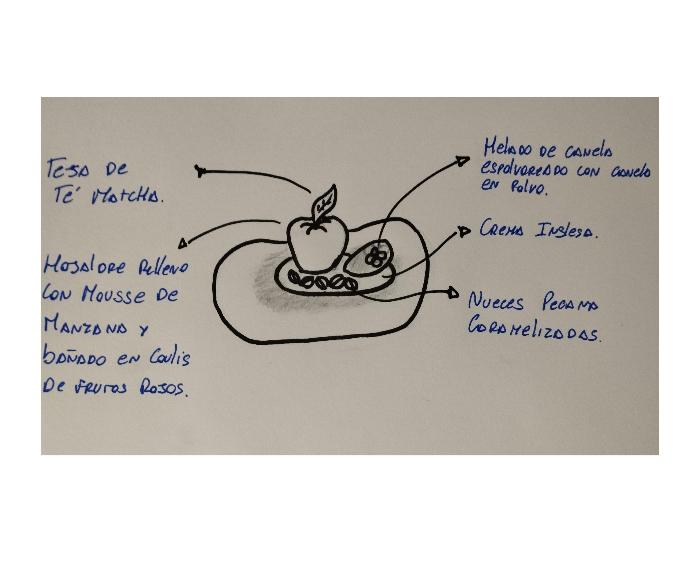 Teja de
Té Matcha.
Hojaldre Relleno
con Mousse de
Manzana y
bañado en Coulis
De Frutos Rojos.
Helado de canela
espolvoreado con canela
en Polvo.
Crema Inglesa.
Nueces Pecana
Caramelizadas.